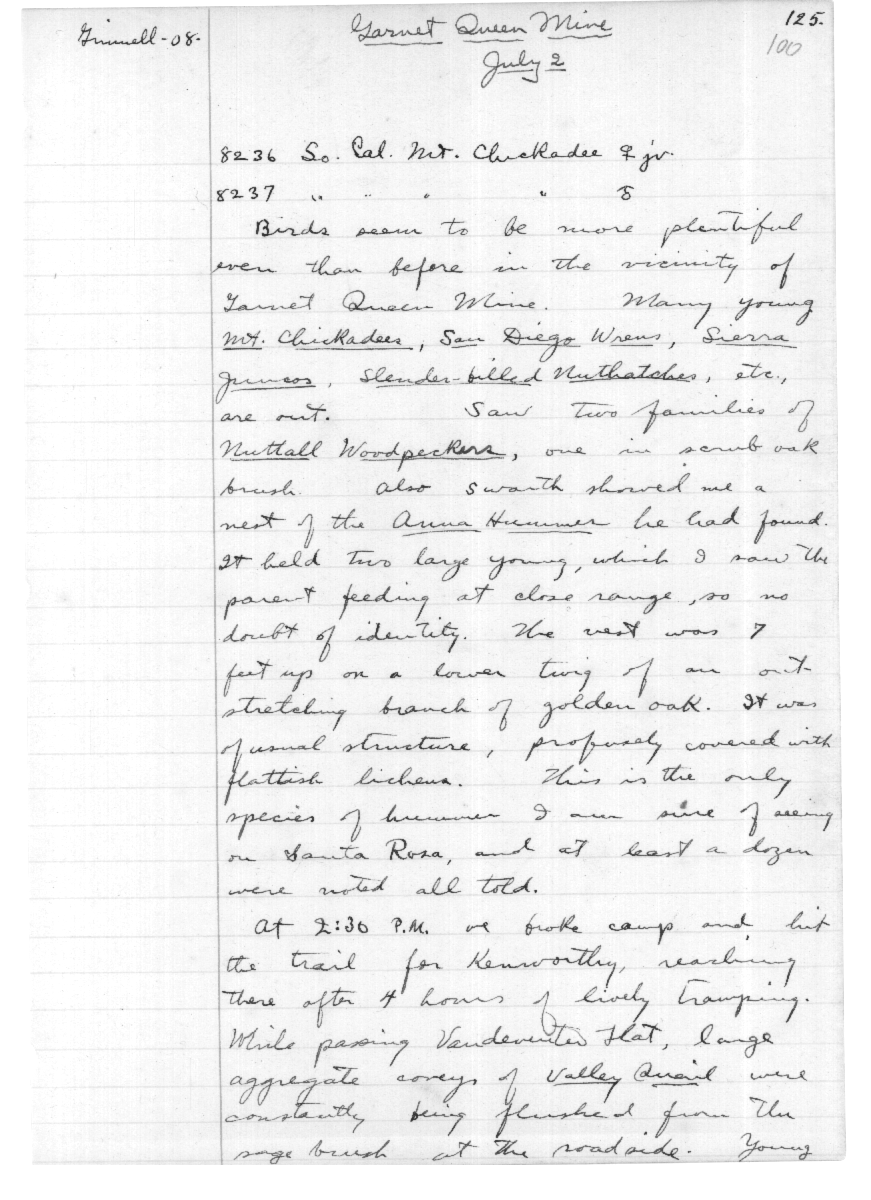 Grinnell-08-
Garnet Queen Mine
125.
100
July 2
8236 So. Cal. Mt. Chickadee ♀ jv.
8237 " " " " ♂
Birds seem to be more plentiful
even than before in the vicinity of
Garnet Queen Mine. Many young
Mt. Chickadees, San Diego Wrens, Sierra
Juncos, Slender-billed Nuthatches, etc.,
are out. Saw two families of
Nuttall Woodpeckers, one in scrub oak
brush. Also Swarth showed me a
nest of the Anna Hummer he had found.
It held two large young, which I saw the
parent feeding at close range, so no
doubt of identity. The nest was 7
feet up on a lower twig of an out-
stretching branch of golden oak. It was
of usual structure, profusely covered with
flattish lichens. This is the only
species of hummer I am sure of seeing
on Santa Rosa, and at least a dozen
were noted all told.
At 2:30 P.M. we broke camp and hit
the trail for Kenworthy, reaching
there after 4 hours of lively tramping.
While passing Vandeventer Flat, large
aggregate coveys of Valley Quail were
constantly being flushed from the
sage brush at the roadside. Young